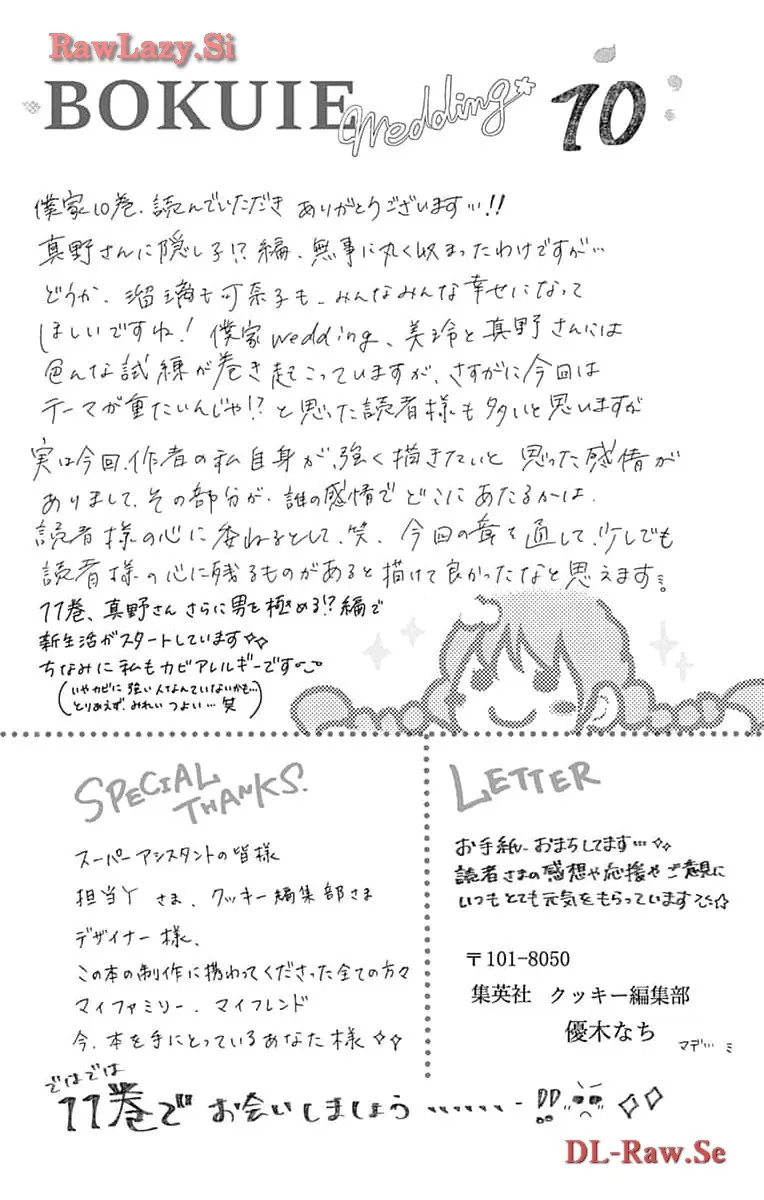 RawLazy.Si
BOKUIE Wedding 10
僕家10巻、読んでいただき ありがとうございます…!!
真野さんに隠し子!?編、無事に丸く収まったわけですが…
どうか、瑠璃も可奈子も、みんなみんな幸せになって
ほしいですね! 僕家wedding、美玲と真野さんには
色んな試練が巻き起こっていますが、さすがに今回は
テーマが重たいんじゃ!? と思った読者様も多いと思いますが
実は今回、作者の私自身が、強く描きたいと 思った感情が
ありまして、その部分が、誰の感情で どこにあたるかは、
読者様の心に委ねるとして、笑、今回の章を通して、少しでも
読者様の心に残るものがあると描けて良かったなと思えます
11巻、真野さん さらに男を極める!?編で
新生活がスタートしています
ちなみに私もカビアレルギーです
(いやカビに強い人なんていないかも…
とりあえず、みれい つよい… 笑)
SPECIAL
THANKS.
スーパーアシスタントの皆様
担当Y さま、クッキー編集部さま
デザイナー様、
この本の制作に携わってくださった全ての方々
マイファミリー、マイフレンド
今、本を手にとっているあなた様
LETTER
お手紙、おまちしてます…
読者さまの感想や応援やご意見に
いつもとても元気をもらっています
〒101-8050
集英社 クッキー編集部
優木なち
マデ…
ではでは
11巻で お会いしましょう……
DL-Raw.Se